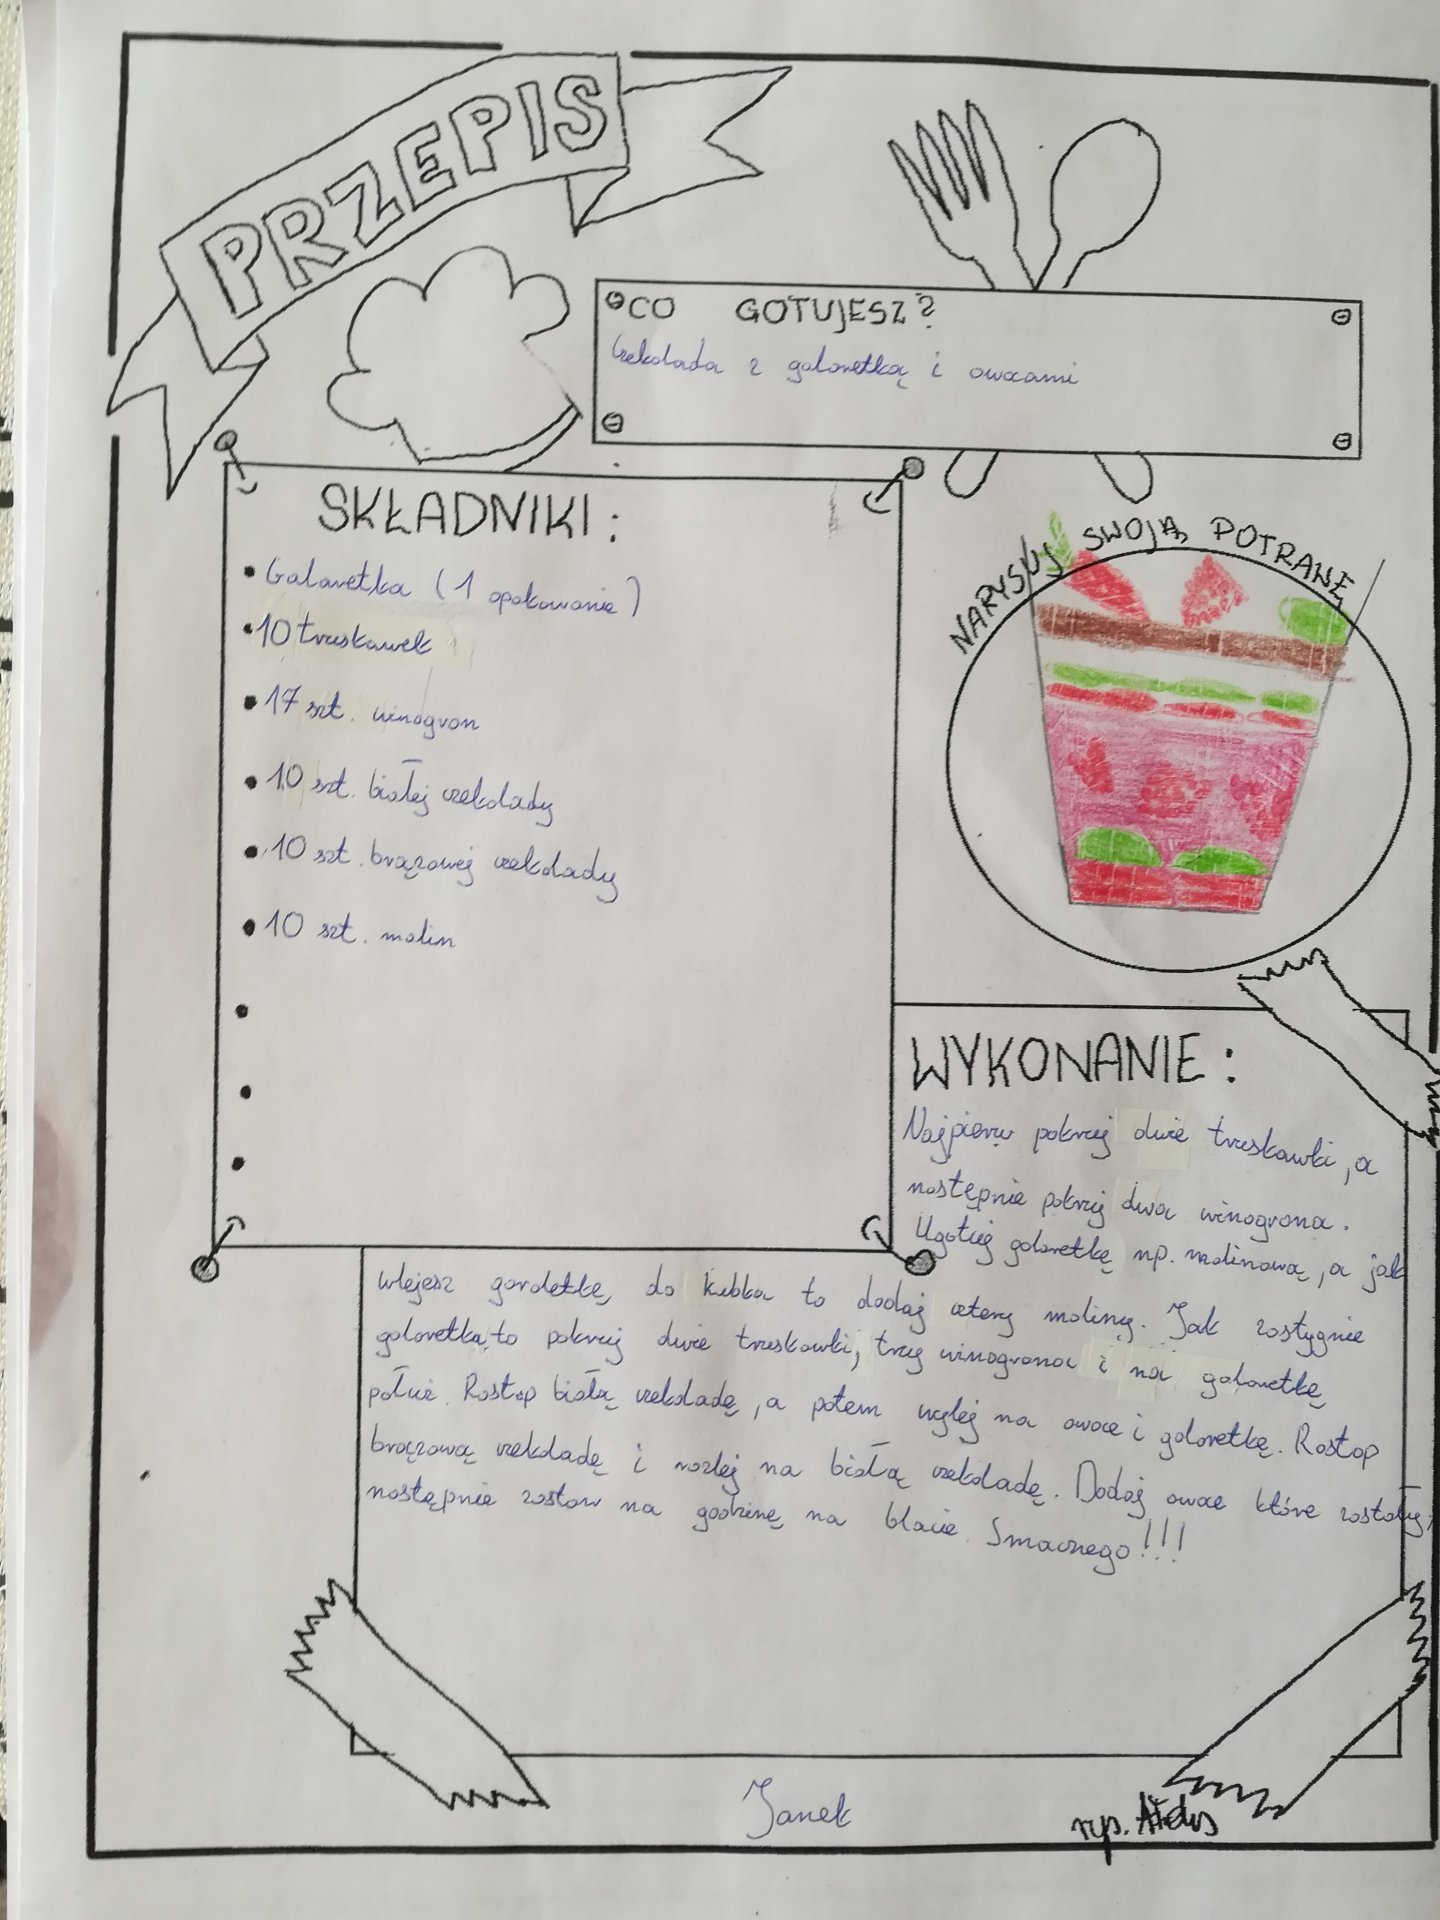 PRZEPIS
CO GOTUJESZ?
Czekolada z galaretką i owocami
SKŁADNIKI:
• Galaretka (1 opakowanie)
• 10 truskawek
• 17 szt. winogron
• 10 szt. białej czekolady
• 10 szt. brązowej czekolady
• 10 szt. malin
NARYSUJ SWOJĄ POTRANĘ
WYKONANIE:
Najpierw pokruj dwie truskawki, a
następnie pokruj dwa winogrona.
Ugotuj galaretkę np. malinową, a jak
wlejesz gardetkę, do kubka to dodaj cztery maliny. Jak zastygnie
galaretka, to pokruj dwie truskawki, trzy winogrona i na galaretkę
połuż. Rostop białą czekoladę, a potem wylej na owoce i galaretkę. Rostop
brązową czekoladę i rozlej na białą czekoladę. Dodaj owoce które zostały,
następnie zostaw na godzinę na blacie. Smacznego!!!
Janek
rys.